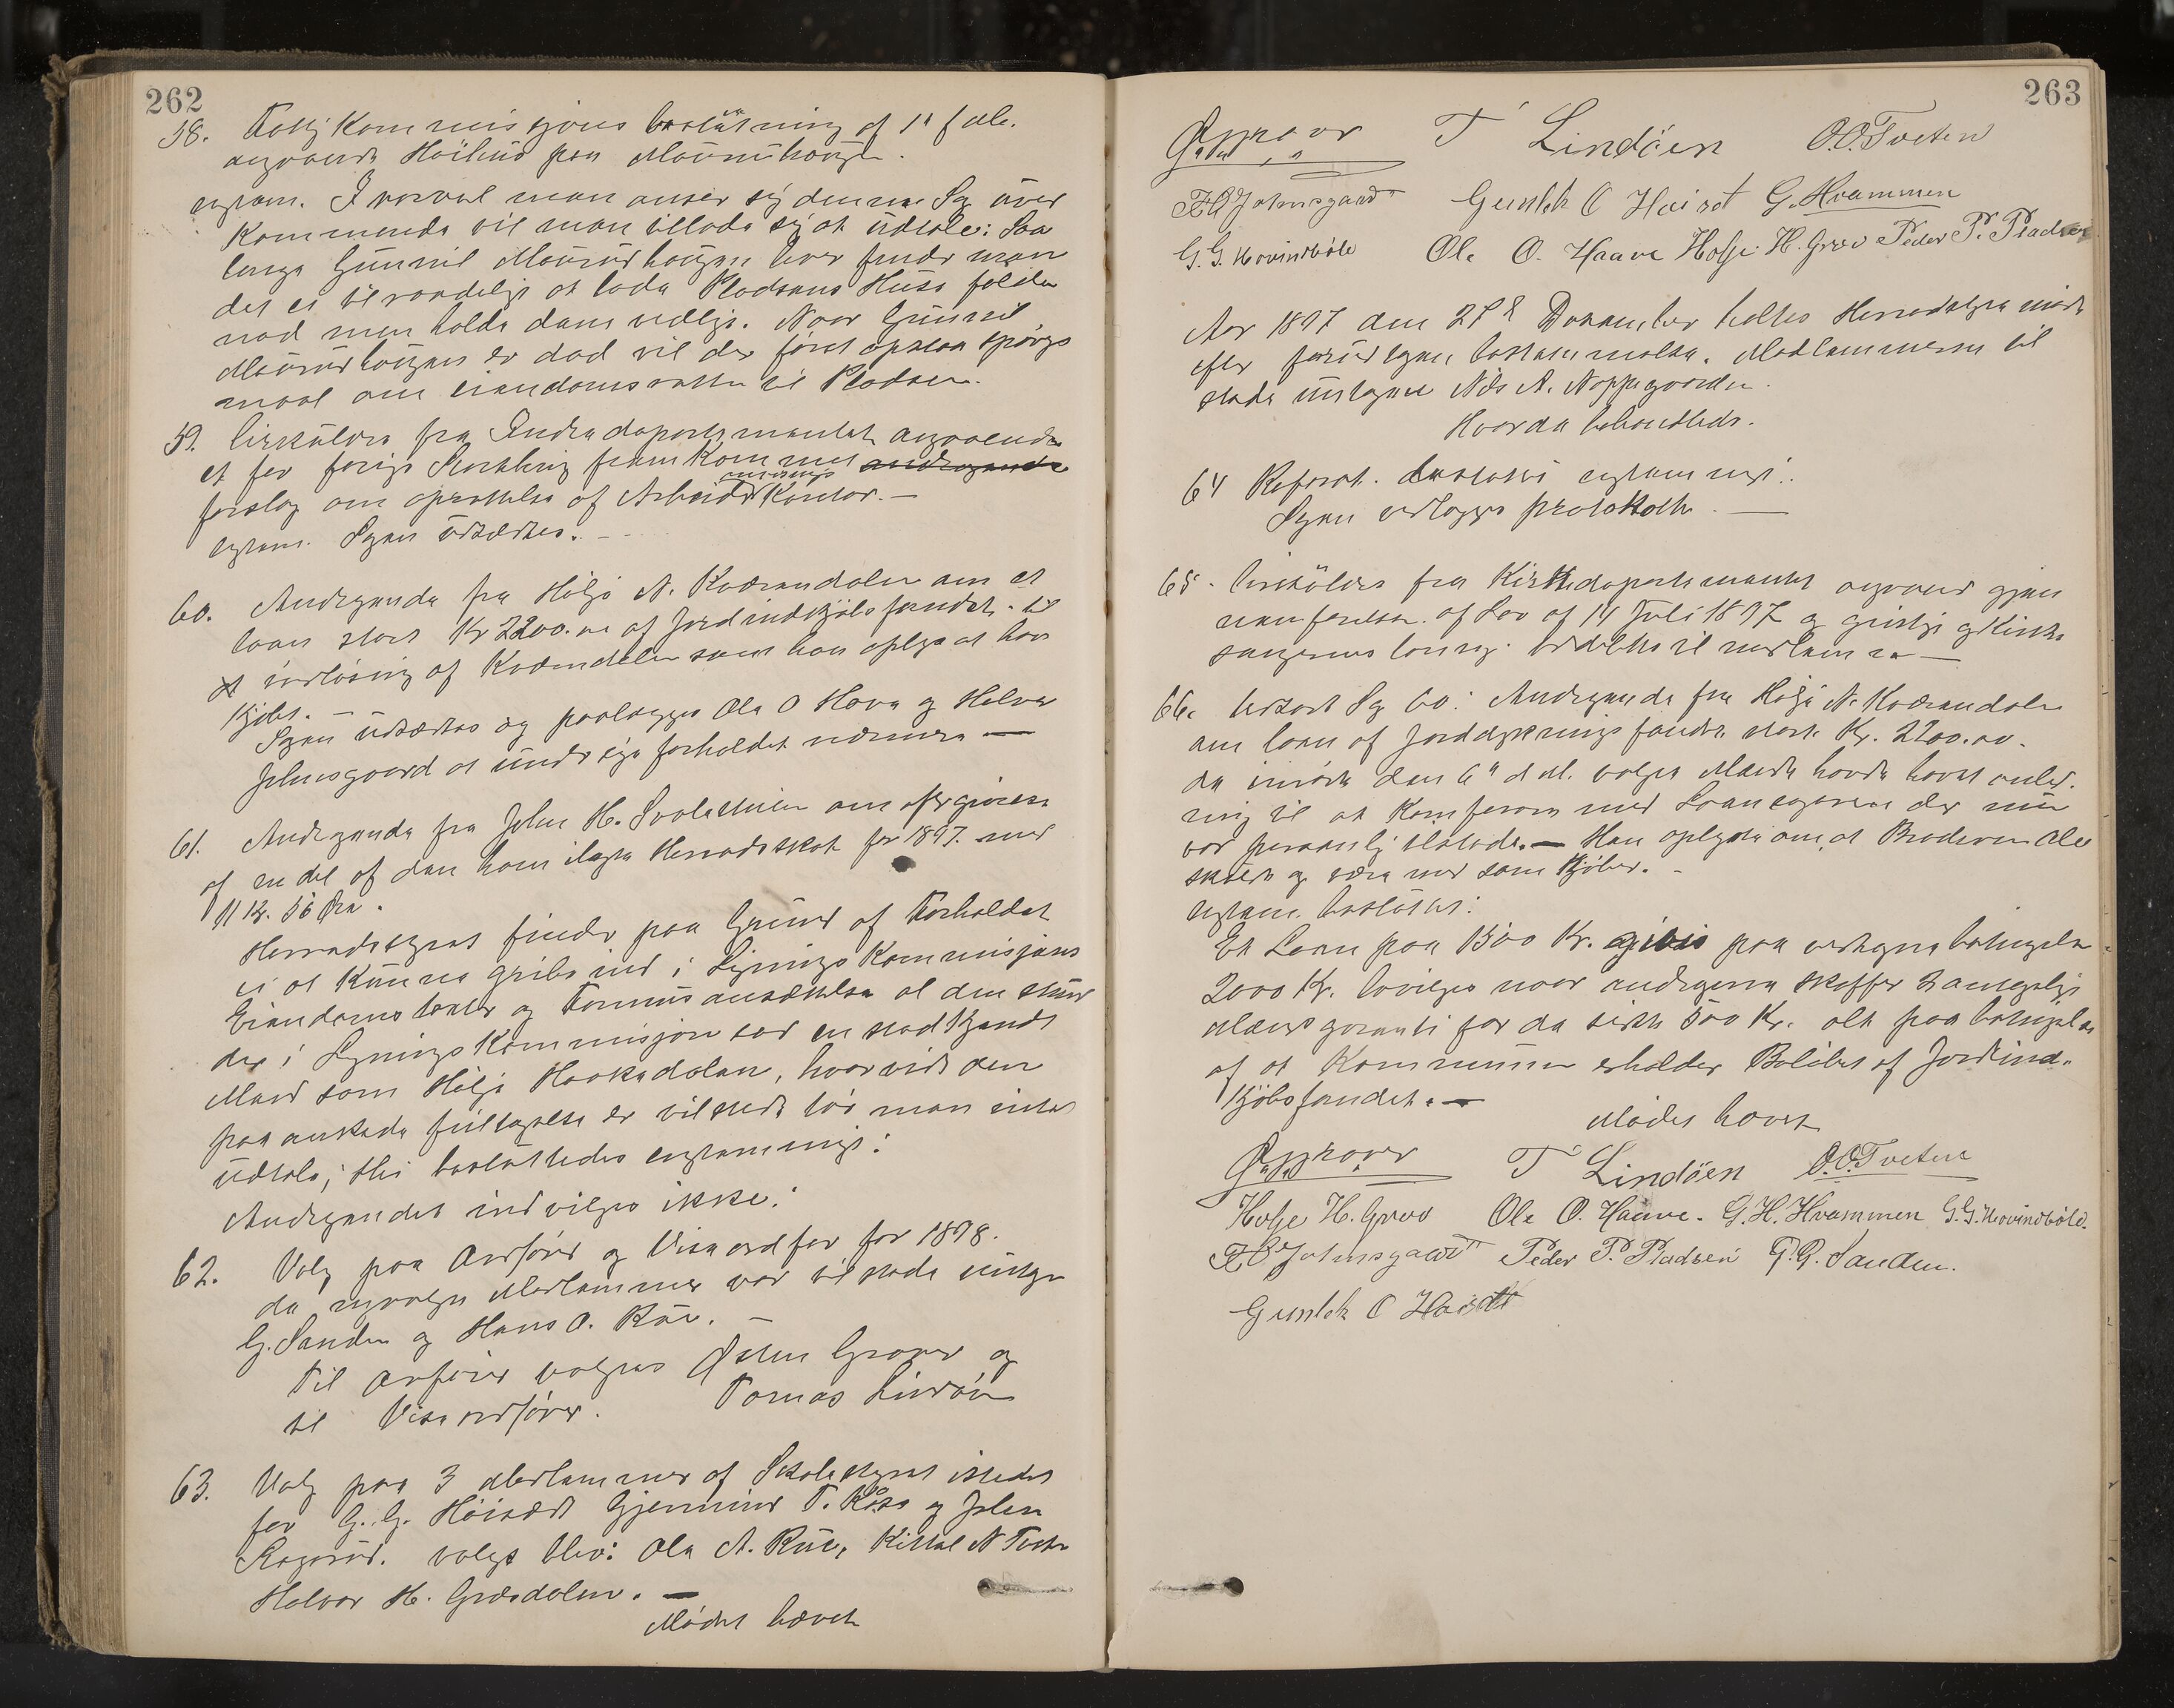 262
58. Fattigkommissjons beslutning af 1ste f. M.
angaaende Huslius paa Maurudhaugen.
enstem. I hvorvel man anser sig denne Sag uved
kommende vil man tillade sig at udtale: Saa
længe Gunnil Maurudhaugen lever finder man
det ei tilraadeligt at lade Pladsens Huse falde
ned men holde dem vedlige. Naar Gunnil
Maurudhaugen er død vil der først opstaa spørgs
maal om eiendomsretten til Pladsen.
59. Cirkulære fra Indredepartementet angaaende
et for forrige Storthing fremkommet andragende
forslag om oprettelse af Arbeidsanvisningskontor. —
Enstem. Sagen udsættes. —
60. Andragende fra Helje N. Kværndalen om et
laan stort Kr 2200.00 af Jordindkjøbsfondet til
at indløsning af Kværndalen som han oplyser at have
kjøbt. —
Sagen udsættes og paalægges Ole O Haave og Halvor
Johnsgaard at undersøge forholdet nærmere —
61. Andragende fra John H. Svolestuen om eftergivelse
af en del af den ham ilagte Herredsskat for 1897. med
11 Kr. 56 Øre.
Herredsstyret finder paa Grund af Forholdet
ei at kunne gribe ind i Ligningskommisjons
Eiendoms takst og Formuesansættelse al den stund
der i Ligningskommisjon sad en stedkjendt
Mand som Helje Haakadalen, hvorvidt den
paaankede fritagelse er tilstede tør man intet
udtale; thi besluttedes enstemmigt:
Andragendet indvilges ikke.
62. Valg paa Orfører og Viseordfør for 1898.
da nyvalgte Medlemmer var tilstede undtagen
G. Sanden og Hans O. Rue. —
Til Orfører valgtes Østen Graver og
til Viseordfører. Tomas Lindøen
63. Valg paa 3 Medlemmer af Skolestyret istedet
for G. G. Høisædt Gjermund T. Kaasa og John
Rogerud. valgt blev: Ole A. Rue, Kittel N Tveten
Halvor H. Græsdalen. —
Mødet hævet
263
Ø. Graver T Lindöen O.O. Tveten
H O Johnsgaard Gunlek O Haisæt G. Hvammen
G. G. Hovindbøle Ole O. Haave Holje H. Grøv Peder P. Pladsen
Aar 1897 den 27de Desember holtes Herredstyremøde
efter forudgaaen bestemmelse. Medlemmerne til
stede undtagen Nils A. Noppegaarden.
Hvorda behandledes.
64 Referat. besluttet enstemmigt:
Sagen vedlægges protokollen. —
65. Cirkulære fra Kirkedepartementet angaaend gjen
nemførelse af Lov af 14 Juli 1897 og geistlige og Kirke
sangernes lønning. Uddeltes til medlemmer —
66. Utsat Sag 60: Andragende fra Helje N. Kværndalen
om laan af Jorddyrkningsfondet stort Kr. 2200.00.
da imøde den 6te d. M. valgte Mænd havde havt anled.
ning til at Komferere med Laansøgeren der nu
var personlig tilstede. — Han oplyste om, at Broderen Ole
skulde og være med som Kjøber. —
Enstem. besluttet:
Et Laan paa 1500 Kr. givis paa vedtagne betingelser
2000 Kr. bevilges naar andrageren skaffer 2 antagelige
Mænds garanti for de sidste 500 Kr. alt paa betingelse
af at Kommunen erholder Beløbet af Jordind.
kjøbsfondet. —
Mødet hævet
Ø. Graver T Lindöen O.O. Tveten
Holje H. Grøv Ole O. Haave. G. H. Hvammen G. G. Hovindbøle.
H O Johnsgaard Peder P. Pladsen G. G. Sanden.
Gunlek O Haisæt